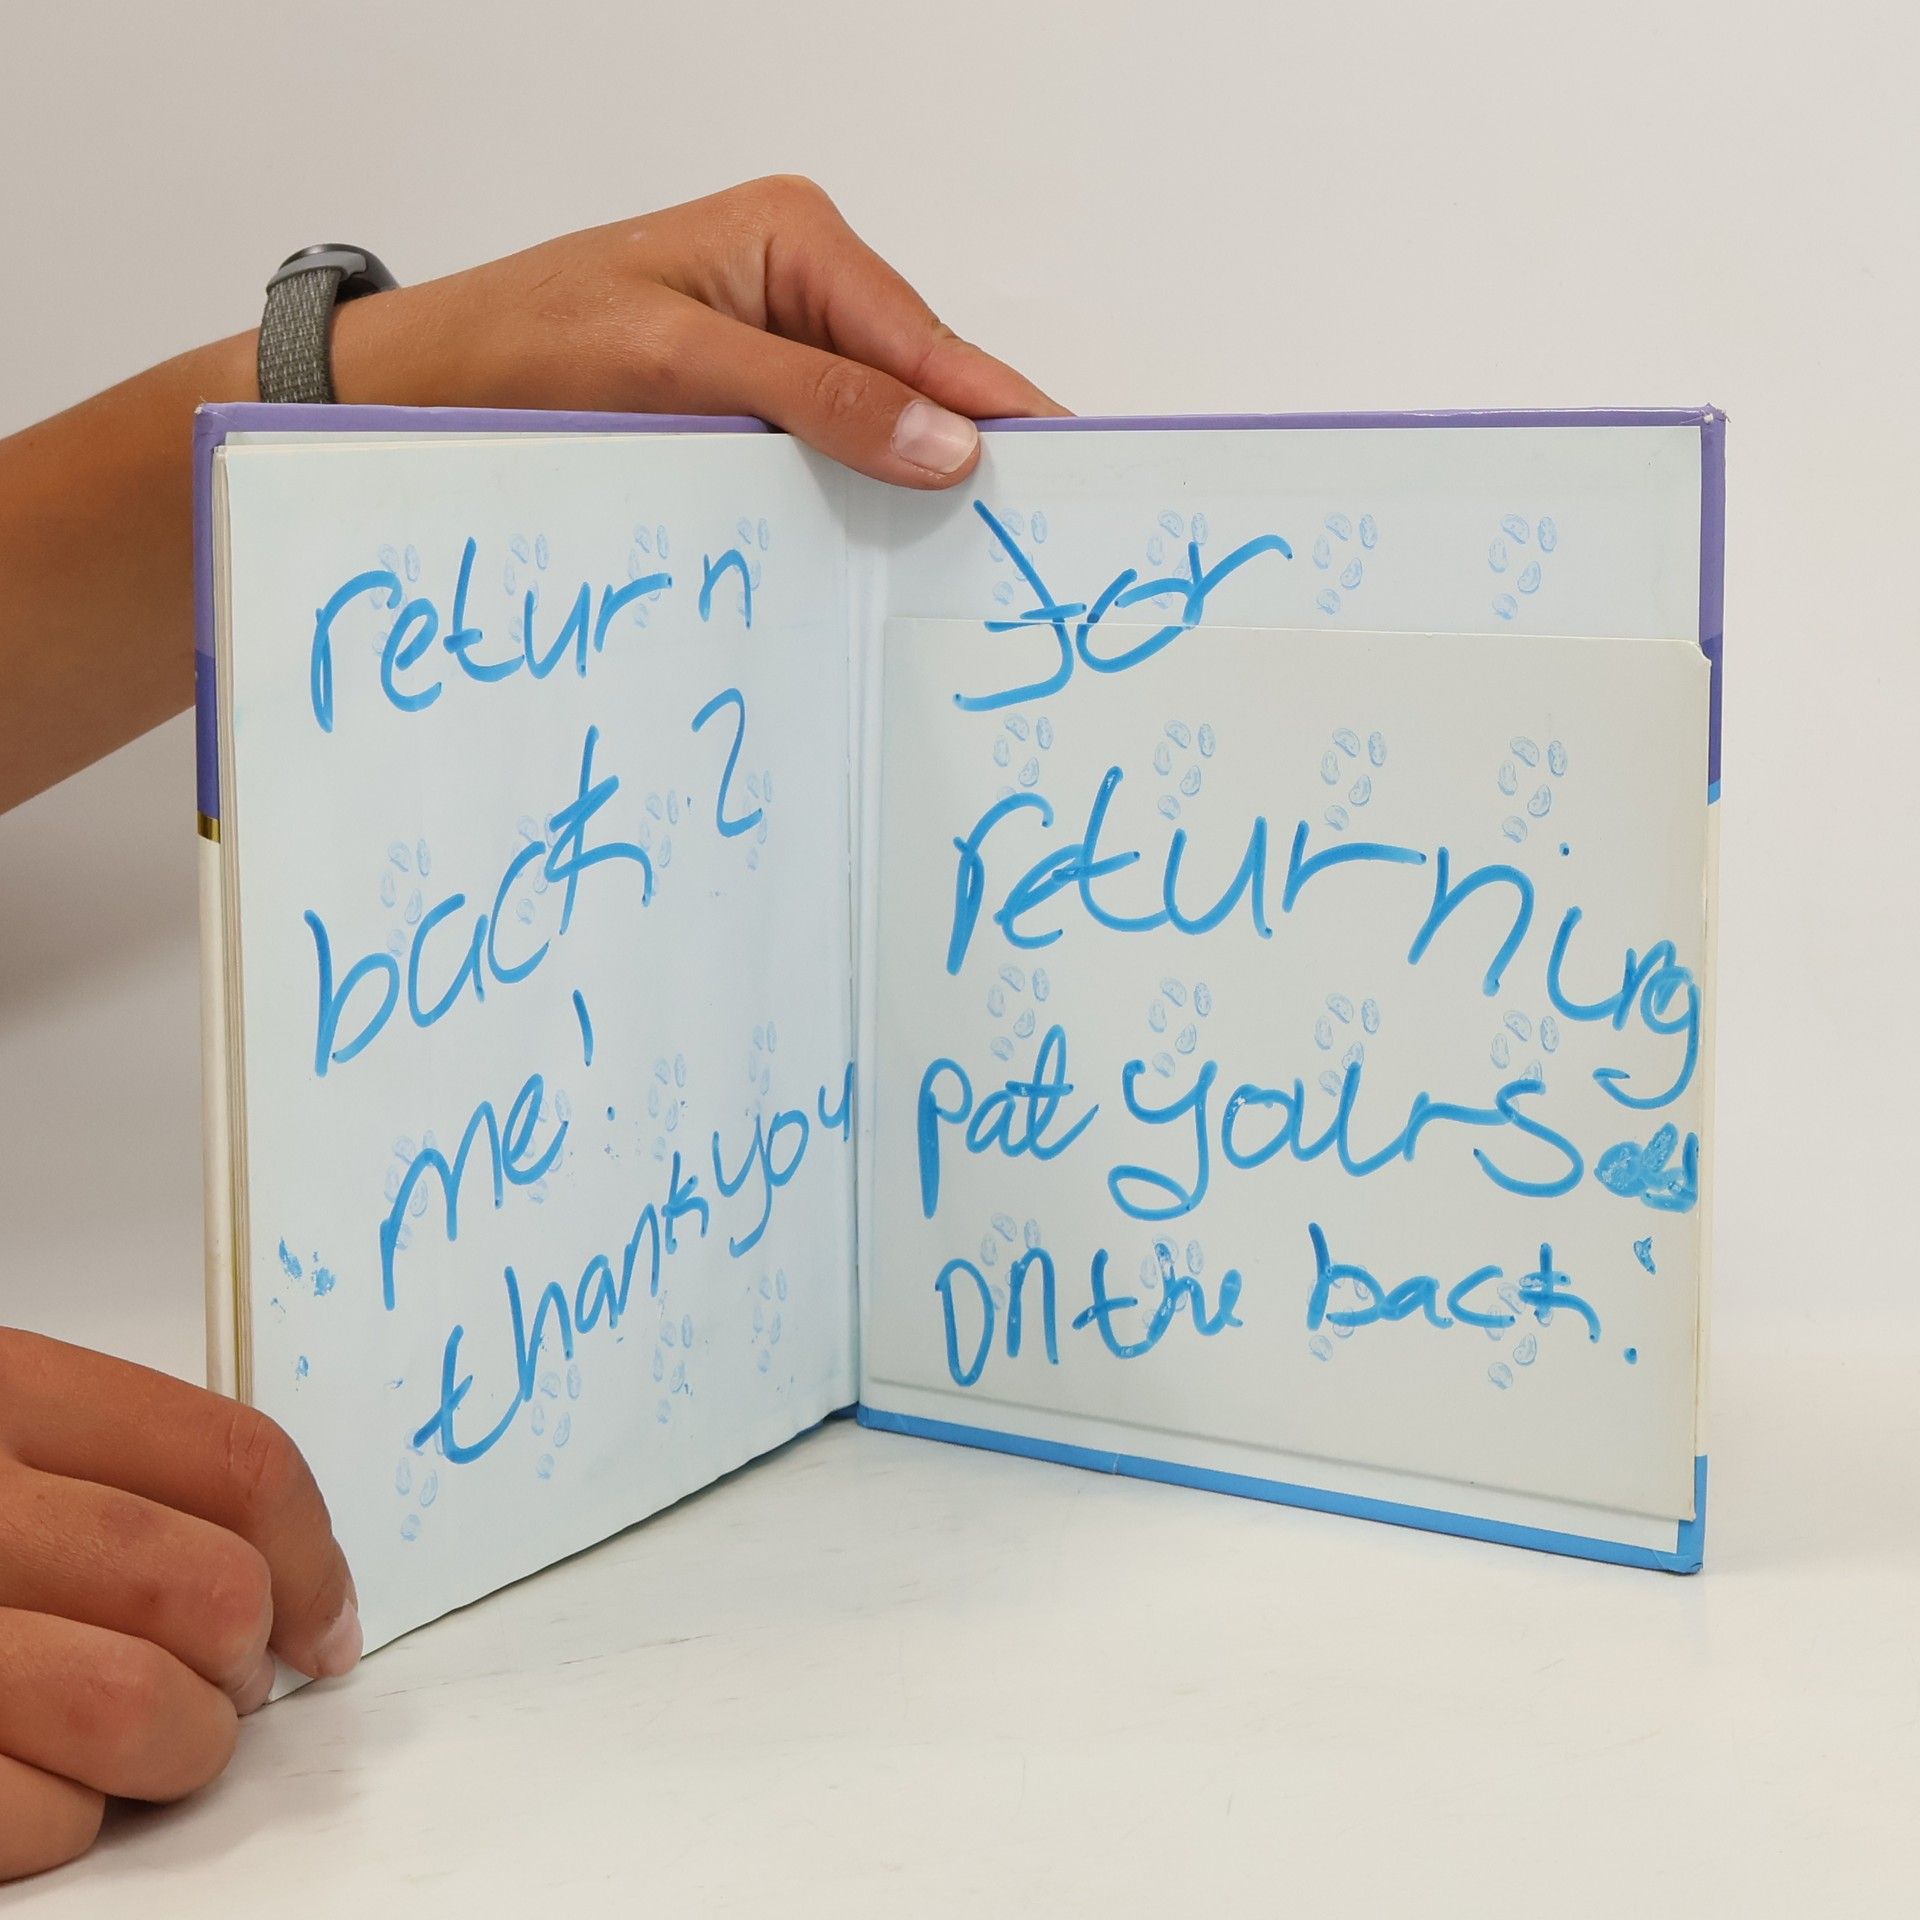 return
back 2
me!
thank you
for
returning
pat yourself
on the back!